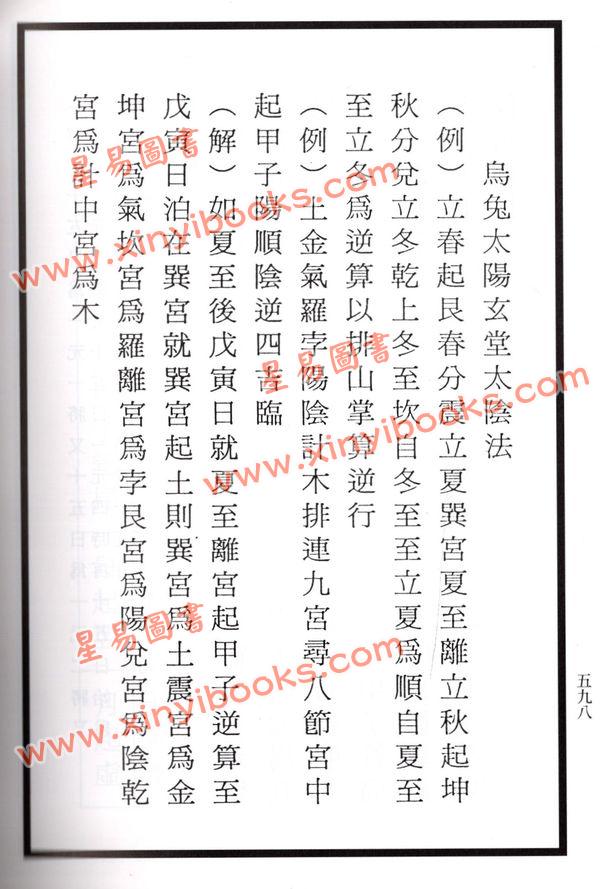 烏兔太陽玄堂太陰法
（例）立春起艮春分震立夏巽宮夏至離立秋起坤
秋分兌立冬乾上冬至坎自冬至至立夏為順自夏至
至立冬為逆算以排山掌算逆行
（例）土金氣羅孛陽陰計木排連九宮尋八節宮中
起甲子陽順陰逆四吉臨
（解）如夏至後戊寅日就夏至離宮起甲子逆算至
戊寅日泊在巽宮就巽宮起土則巽宮為土震宮為金
坤宮為氣坎宮為羅離宮為孛艮宮為陽兌宮為陰乾
宮為計中宮為木
五九八
星易圖書
www.xinyibooks.com
星易圖書
www.xinyibooks.com
星易圖書
www.xinyibooks.com